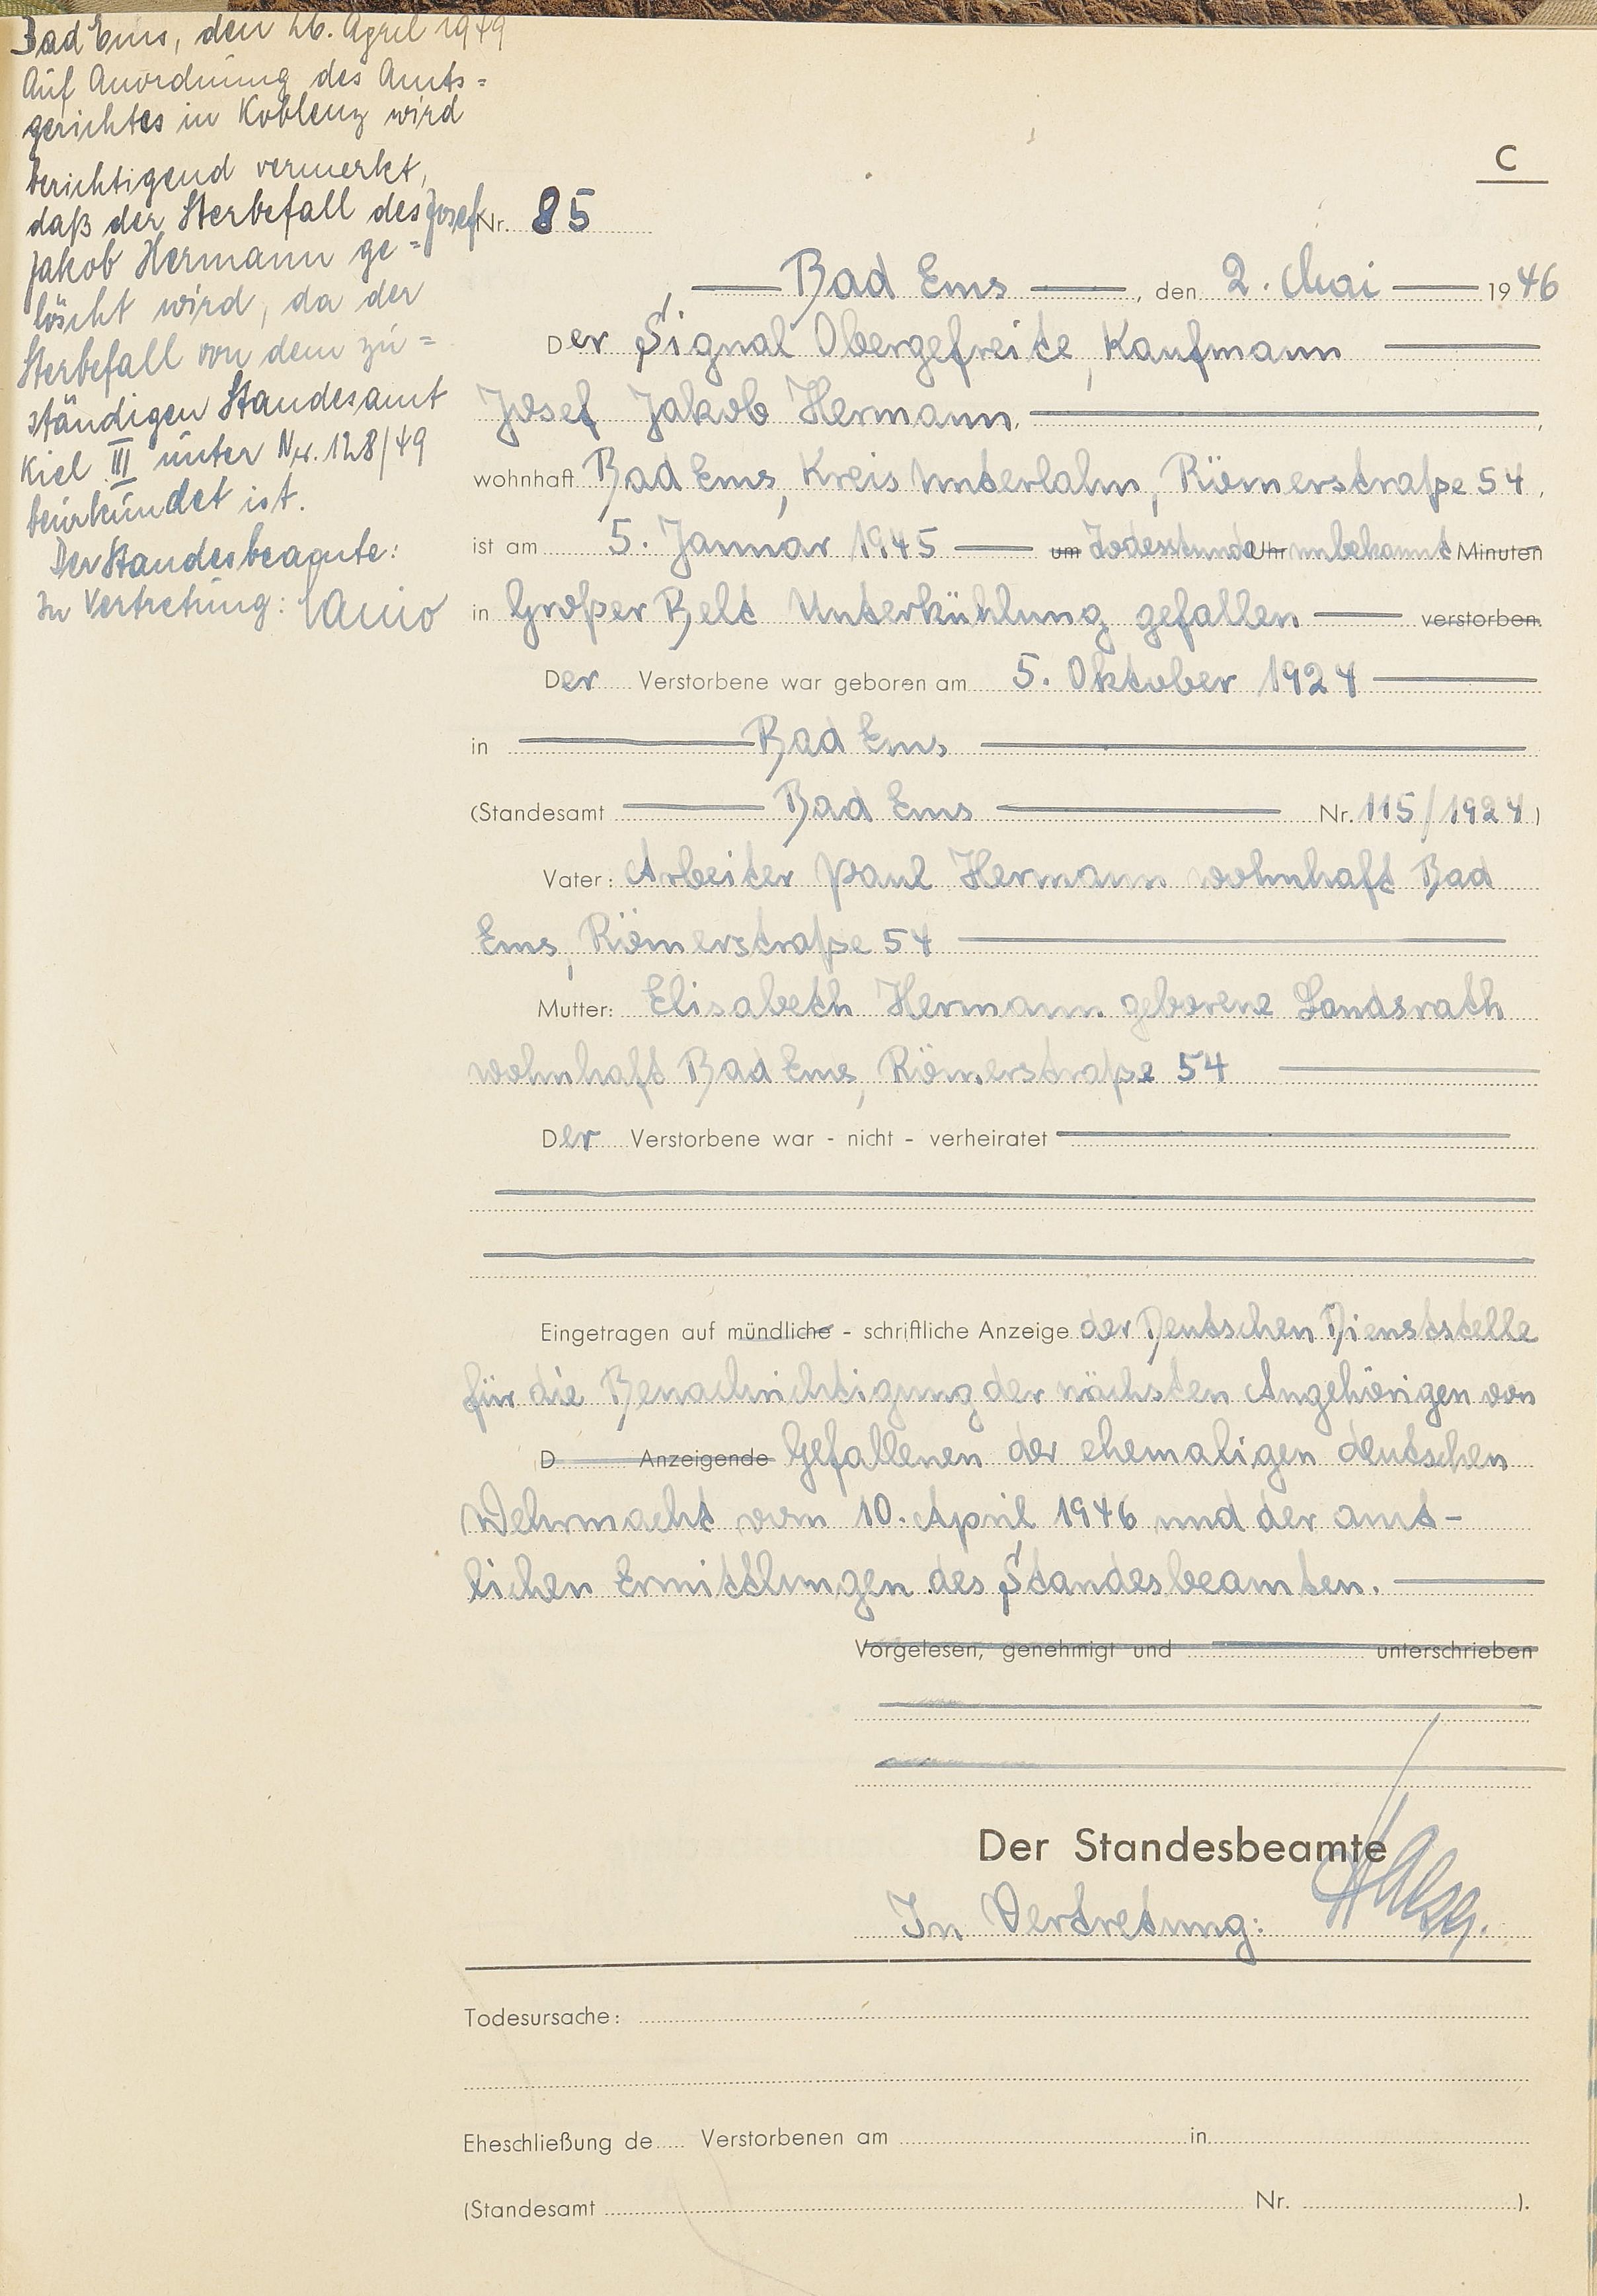 Bad Ems, den 26. April 1949
Auf Anordnung des Amts=
gerichtes in Koblenz wird
berichtigend vermerkt,
daß der Sterbefall des Josef
Jakob Hermann ge=
löscht wird, da der
Sterbefall von dem zu=
ständigen Standesamt
Kiel III unter Nr. 128/49
beurkundet ist.
Der Standesbeamte:
In Vertretung:
C
Nr. 85
Bad Ems, den 2. Mai 1946
Der Signal Obergefreite, Kaufmann
Josef Jakob Hermann,
wohnhaft Bad Ems, Kreis Unterlahn, Römerstraße 54,
ist am 5. Januar 1945 um Todesstunde Uhr unbekannt Minuten
in Großer Belt Unterkühlung gefallen verstorben.
Der Verstorbene war geboren am 5. Oktober 1924
in Bad Ems
(Standesamt Bad Ems Nr. 115/1924)
Vater: Arbeiter Paul Hermann wohnhaft Bad
Ems, Römerstraße 54
Mutter: Elisabeth Hermann geborene Landsrath
wohnhaft Bad Ems, Römerstraße 54
Der Verstorbene war - nicht - verheiratet
Eingetragen auf mündliche - schriftliche Anzeige der Deutschen Dienststelle
für die Benachrichtigung der nächsten Angehörigen von
D Anzeigende Gefallenen der ehemaligen deutschen
Wehrmacht vom 10. April 1946 und der amt-
lichen Ermittlungen des Standesbeamten.
Vorgelesen, genehmigt und unterschrieben
Der Standesbeamte
In Vertretung:
Todesursache:
Eheschließung de Verstorbenen am in
(Standesamt Nr. ).